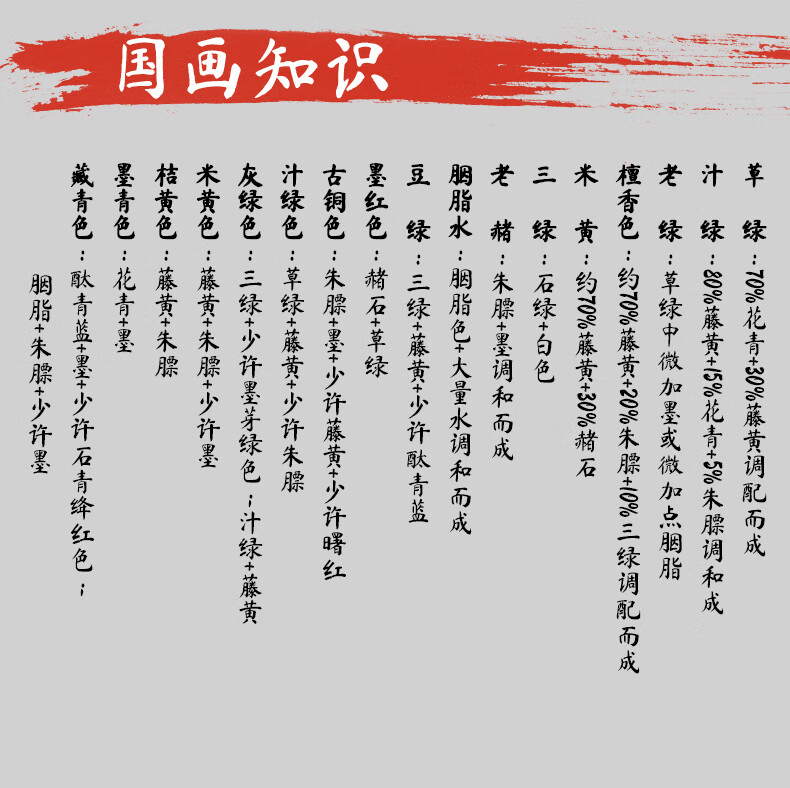 国画知识
草绿：70%花青+30%藤黄调配而成
汁绿：80%藤黄+15%花青+5%朱膘调和成
老绿：草绿中微加墨或微加点胭脂
檀香色：约70%藤黄+20%朱膘+10%三绿调配而成
米黄：约70%藤黄+30%赭石
三绿：石绿+白色
老赭：朱膘+墨调和而成
胭脂水：胭脂色+大量水调和而成
豆绿：三绿+藤黄+少许酞青蓝
墨红色：赭石+草绿
古铜色：朱膘+墨+少许藤黄+少许曙红
汁绿色：草绿+藤黄+少许朱膘
灰绿色：三绿+少许墨芽绿色；汁绿+藤黄
米黄色：藤黄+朱膘+少许墨
桔黄色：藤黄+朱膘
墨青色：花青+墨
藏青色：酞青蓝+墨+少许石青绛红色；
胭脂+朱膘+少许墨